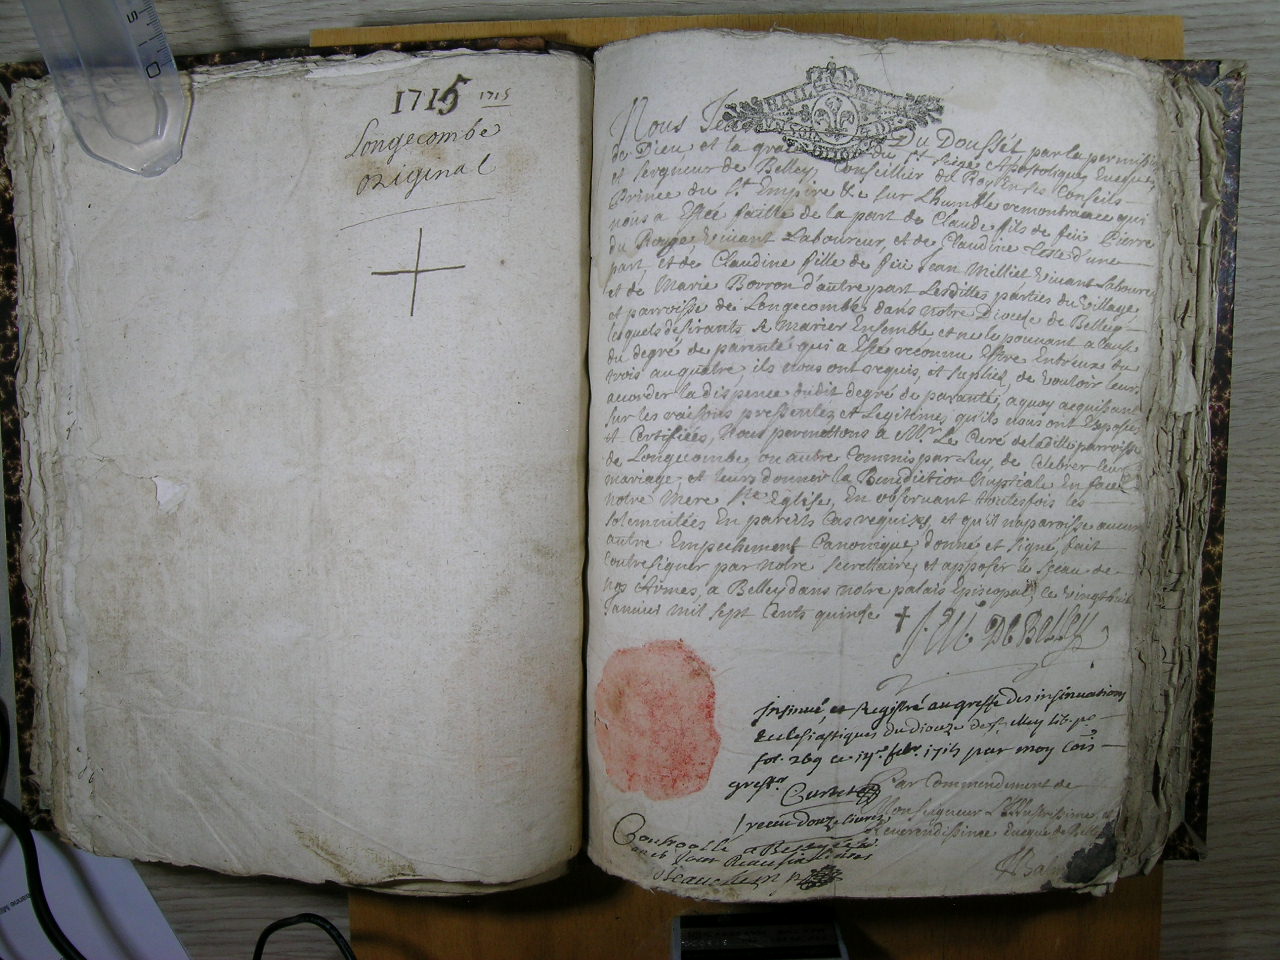 1715 1715
Longecombe
original
Nous Jean Du Doussét par la permission
de Dieu et la grace du St Siege Apostolique Eveque
et seigneur de Belley, Conseiller du Roy en ses Conseils
Prince du St Empire &c sur L'humble remontrance qui
nous a Esté faitte de la part de Claude fils de feu Pierre
du Rouge vivant Laboureur, et de Claudine d'une
part, et de Claudine fille de feu Jean Milliet vivant Laboureur
et de Marie Bovron d'autre part Lesdittes parties du village
et parroisse de Longecombe dans notre Diocese de Belley
lesquels desirants se marier Ensemble et ne le pouvant a cause
du degré de parenté qui a Esté reconnu Estre Entreux du
trois au quatre, ils nous ont requis, et suplies, de vouloir leur
accorder la dispence dudit degré de parenté, a quoy acquisant
sur les raisons pressentes et Legitimes qu'ils nous ont Exposées
et Certifiées, Nous permettons a Mr Le Curé de laditte parroisse
de Longecombe, ou autre Commis par Luy, de Celebrer leur
mariage, et leurs donner la Benediction Nuptiale En face de
notre Mere Ste Eglise, En observant toutesfois les
solemnitées En pareils Cas requises, et qu'il n'aparoisse aucun
autre Empechement Canonique, donné et signé, fait
contresigner par notre secrettaire, et apposer le sceau de
nos Armes, a Belley dans notre palais Episcopal, ce vingt huit
Janvier mil sept Cents quinse † J. Ev. De Belley
Insinué, et Registré au greffe des insinuations
Ecclesiastiques du dioceze de Belley lib.
fol. 269 ce 14e febr. 1715 par moy Con
greffr
receu douze livres
Par Commendement de
Monseigneur L'Illustrissime et
reverendissime Eveque de Belley
Controollé a Belley